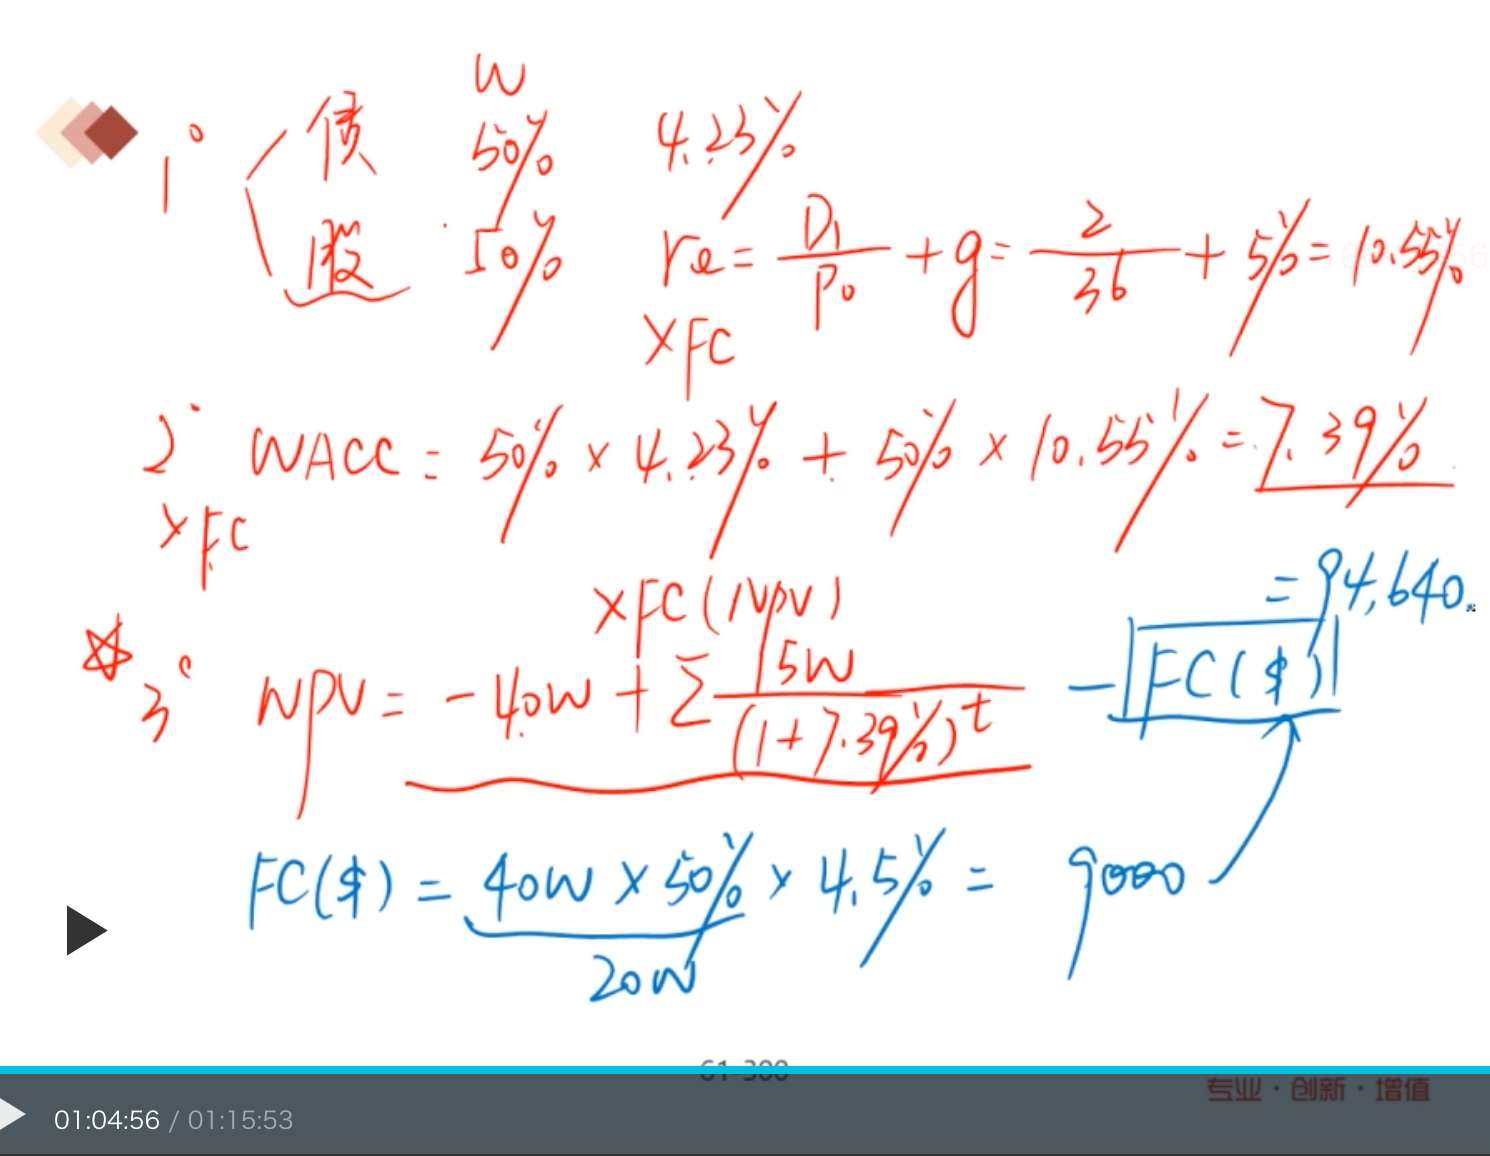 W
1° 债 50% 4.23%
股 50% re = D₁/P₀ + g = 2/36 + 5% = 10.55%
×FC
2° WACC = 50% × 4.23% + 50% × 10.55% = 7.39%
×FC
×FC(NPV)
= 94,640.
3° NPV = -40W + Σ 15W/(1+7.39%)^t - FC($)
FC($) = 40W × 50% × 4.5% = 9000
20W
61-300
专业·创新·增值
01:04:56 / 01:15:53